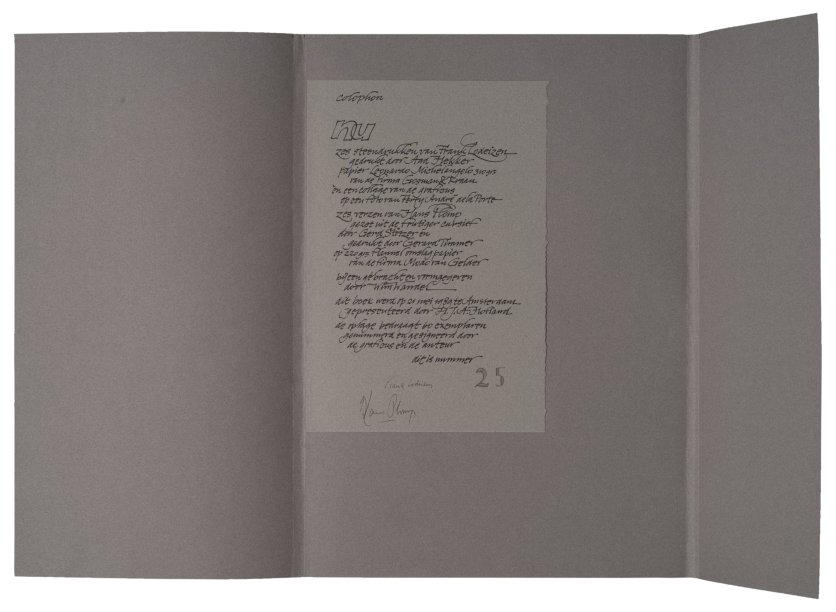 colophon
nu
zes steendrukken van Frank Lodeizen
gedrukt door Aad Hekker
papier Leonardo Michelangelo 310 grs
van de firma Gegman & Kraan
en een collage van de graficus
op een foto van Perry André de la Porte
zes verzen van Hans Plomp
gezet uit de Frutiger cursief
door Gerd Stötzer en
gedrukt door Gerard Timmer
op 220 grs omslagpapier
van de firma Mwdo van Gelder
bijeen gebracht en vormgegeven
door Wim Wandel
dit boek werd op 21 mei 1989 te Amsterdam
gepresenteerd door H.J.A. Hofland
de oplage bedraagt 60 exemplaren
genummerd en gesigneerd door
de graficus en de auteur
dit is nummer
25
Frank Lodeizen
Hans Plomp